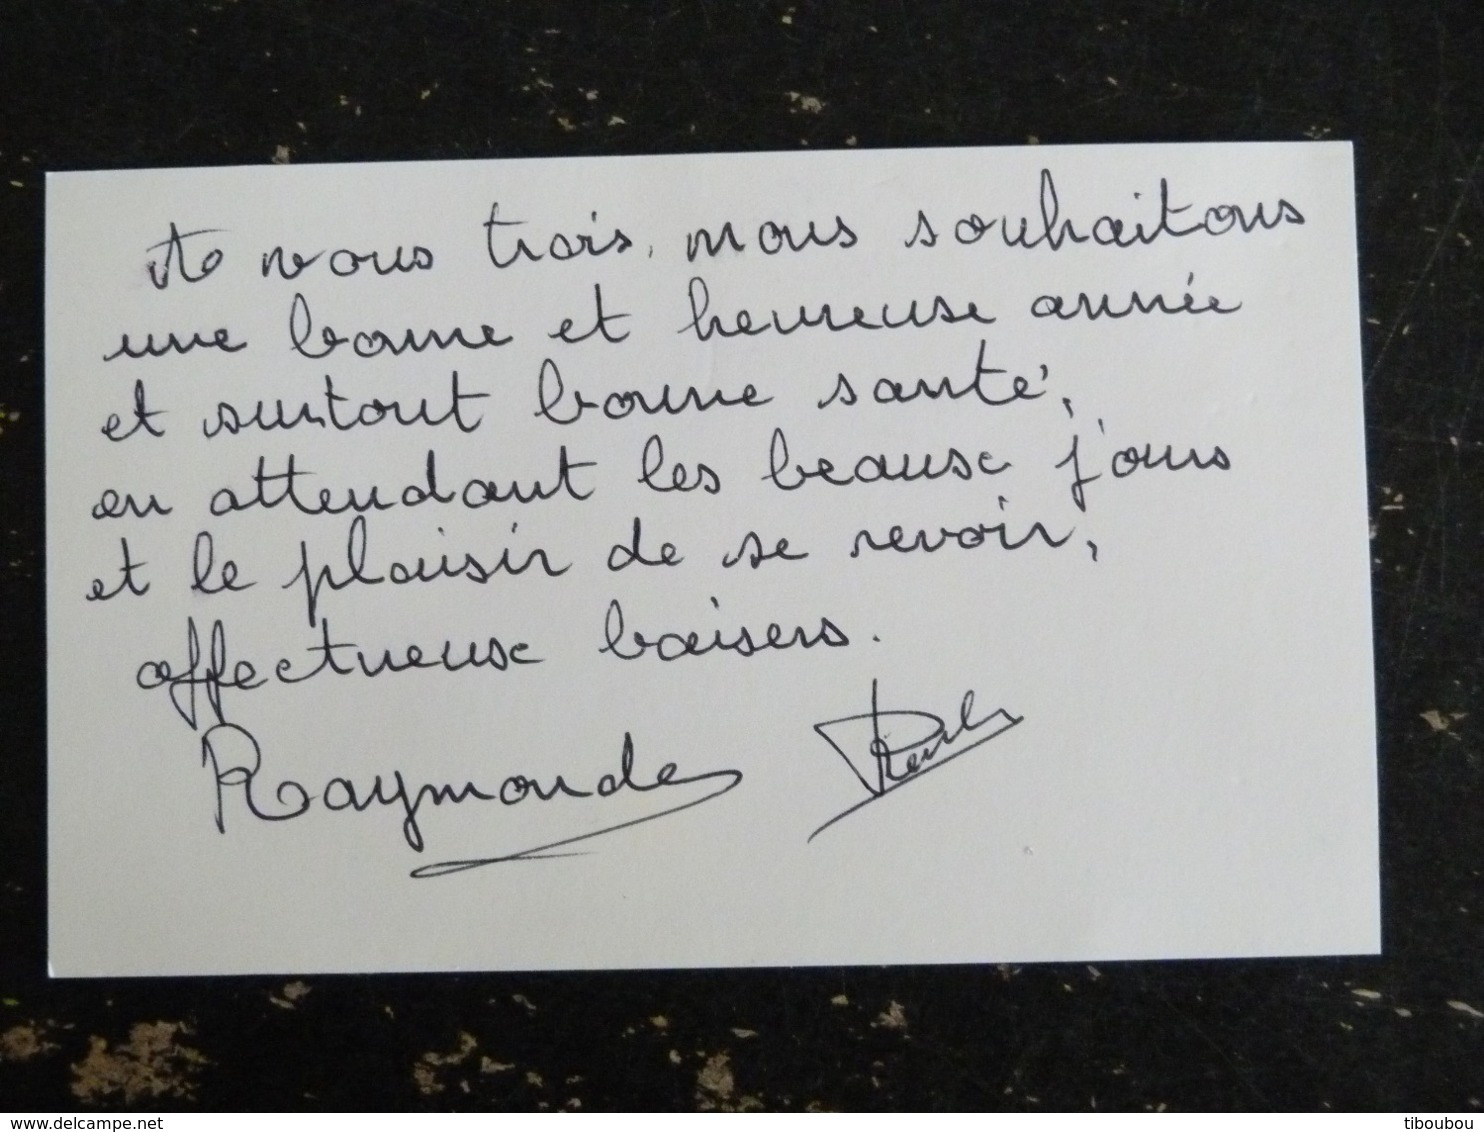 A vous trois, nous souhaitons
une bonne et heureuse année
et surtout bonne santé,
en attendant les beaux jours
et le plaisir de se revoir,
affectueux baisers.
Raymonde
delcampe.net
tiboubou